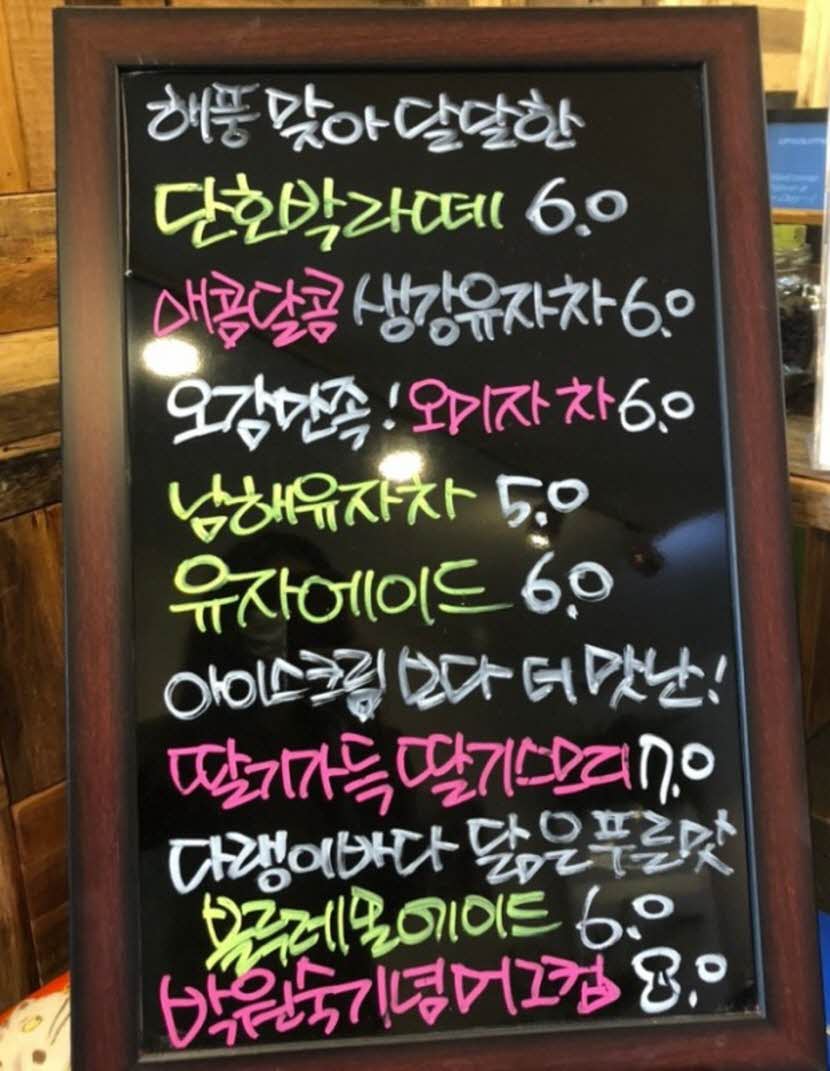 해풍 맞아 달달한
단호박라떼 6.0
새콤달콤 생강유자차 6.0
오감만족! 오미자차 6.0
남해유자차 5.0
유자에이드 6.0
아이스크림 보다 더 맛난!
딸기가득 딸기스무디 7.0
다랭이바다 닮은푸른맛
블루레몬에이드 6.0
박원숙기념머그컵 8.0